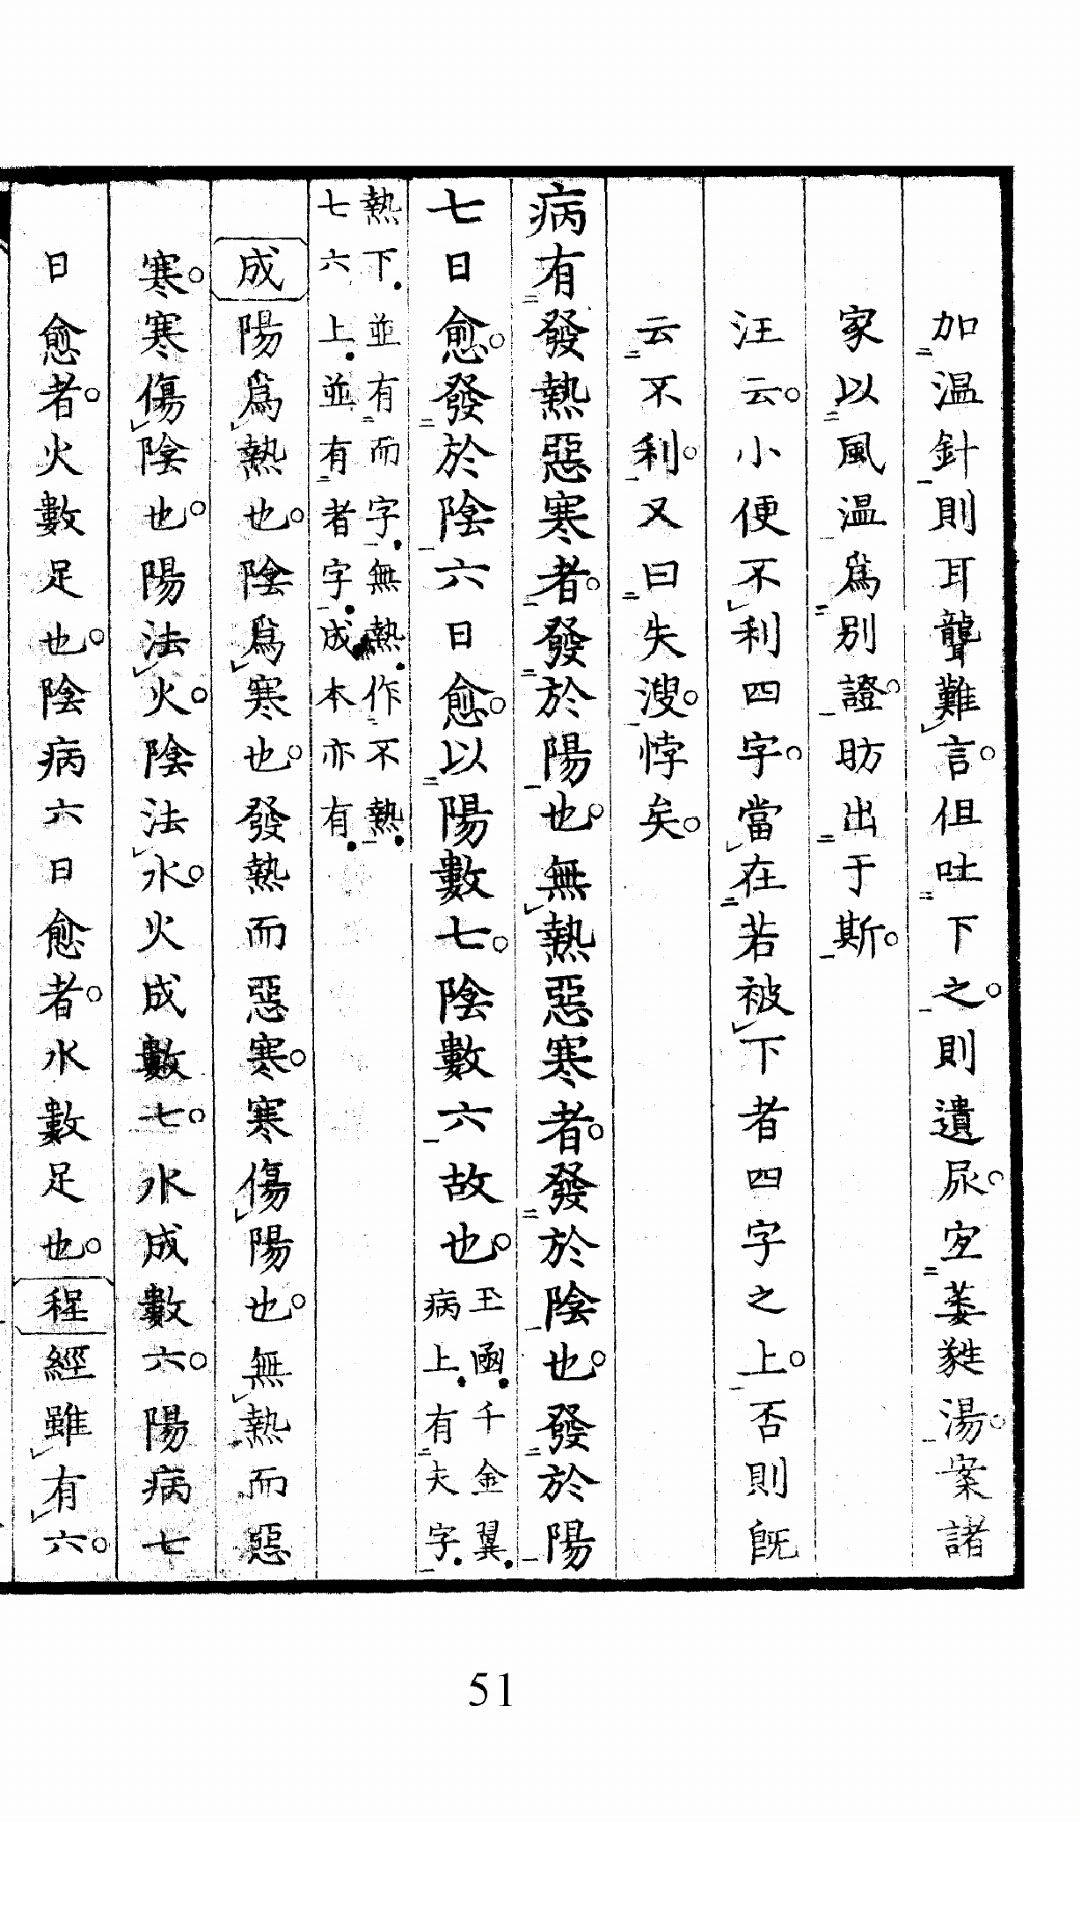 加温針則耳聾難言但吐下之則遺尿宜萎蕤湯案諸
家以風温爲別證昉出于斯
汪云小便不利四字當在若被下者四字之上否則既
云不利又曰失溲悖矣
病有發熱惡寒者發於陽也無熱惡寒者發於陰也發於陽
七日愈發於陰六日愈以陽數七陰數六故也
玉函千金翼
病上有夫字
熱下並有而字無熱作不熱
七六上並有者字成本亦有
成陽爲熱也陰爲寒也發熱而惡寒寒傷陽也無熱而惡
寒寒傷陰也陽法火陰法水火成數七水成數六陽病七
日愈者火數足也陰病六日愈者水數足也程經雖有六
51